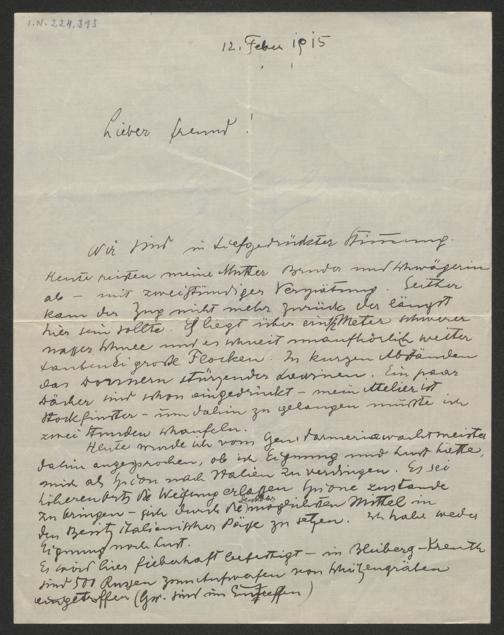 I.N. 224.393
12. Feber 1915
Lieber Freund!
Wir sind in tiefgedrückter Stimmung.
Heute reisten meine Mutter Bruder und Schwägerin
ab – mit zweistündiger Verspätung. Seither
kam der Zug nicht mehr zurück der längst
hier sein sollte. Es liegt über ein Meter schwerer
nasser Schnee und es schneit unaufhörlich weiter
tausende große Flocken. In kurzen Abständen
das Donnern stürzender Lawinen. Ein paar
Dächer sind schon eingedrückt – mein Atelier ist
stockfinster – um dahin zu gelangen musste ich
zwei Stunden schaufeln.
Heute wurde ich vom Gendarmeriewachtmeister
dahin angesprochen, ob ich Eignung und Lust hätte,
mich als Spion nach Italien zu verdingen. Es sei
höherenorts die Weisung erlassen Spione zustande
zu bringen – sich durch die möglichsten Mittel in
den Besitz italienischer Pässe zu setzen. Ich habe weder
Eignung noch Lust.
Es wird hier fieberhaft befestigt – in Bleiberg-Kreuth
sind 500 Russen zum Aufwerfen von Schützengräben
eingetroffen (Gesch. sind im Eintreffen)